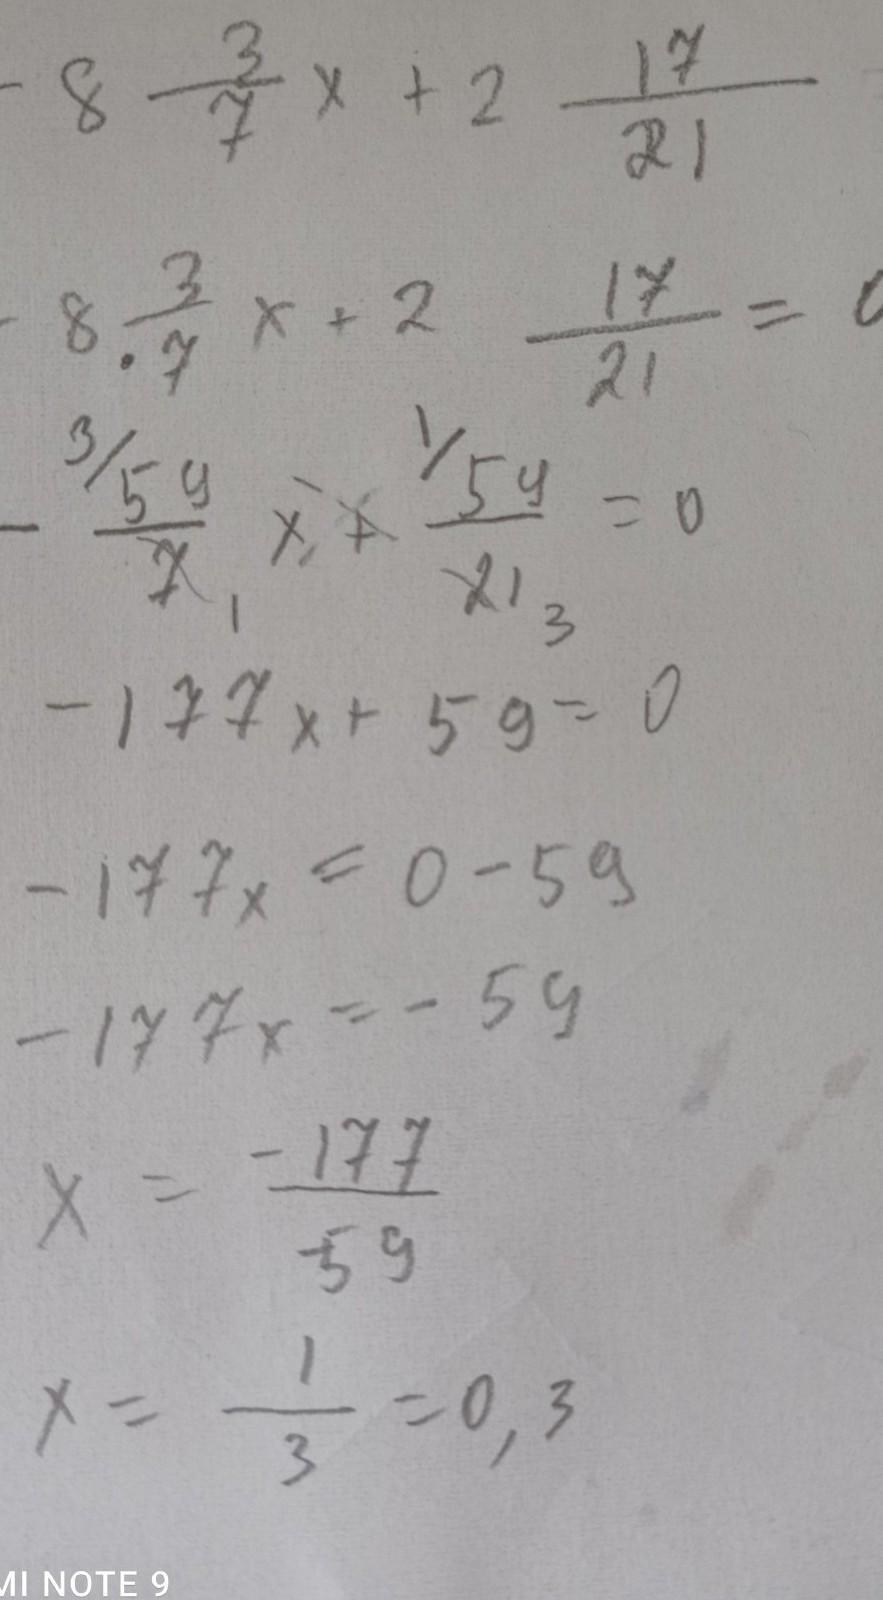 - 8 3/7 x + 2 17/21
- 8 3/7 x + 2 17/21 = 0
- 3/ 59/7 1 x + 1/ 59/21 3 = 0
- 177x + 59 = 0
- 177x = 0 - 59
- 177x = - 59
x = -177/-59
x = 1/3 = 0,3
MI NOTE 9